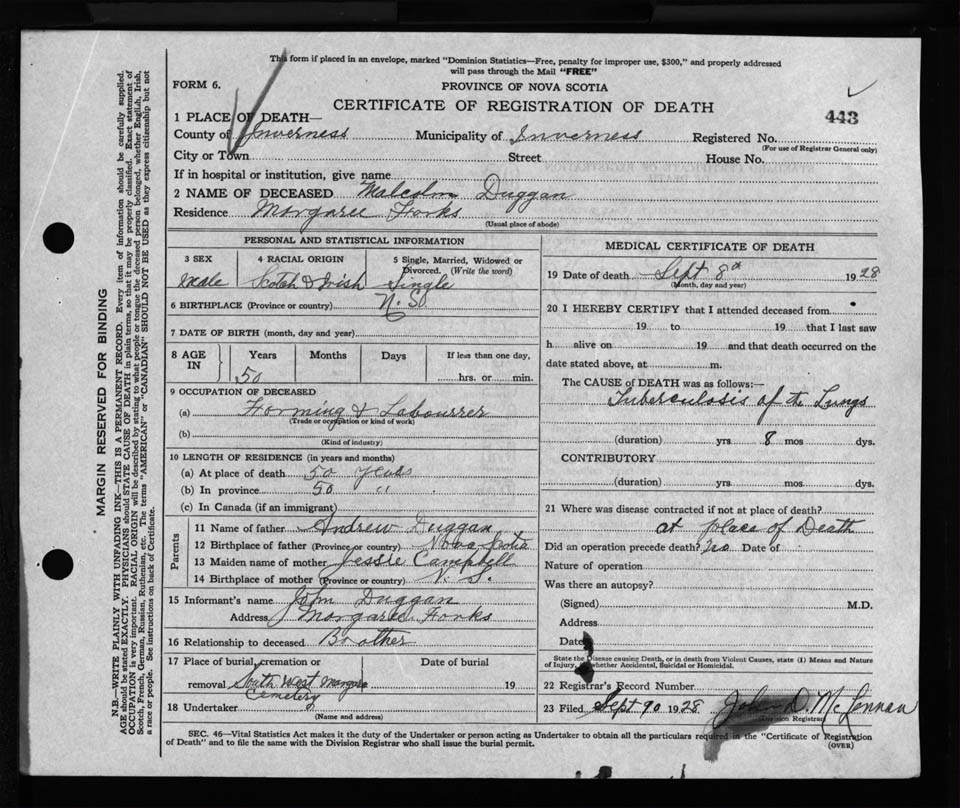 This form if placed in an envelope, marked "Dominion Statistics—Free, penalty for improper use, $300," and properly addressed
will pass through the Mail "FREE"
FORM 6.
PROVINCE OF NOVA SCOTIA
CERTIFICATE OF REGISTRATION OF DEATH
443
1 PLACE OF DEATH—
County of Inverness Municipality of Inverness Registered No.
(For use of Registrar General only)
City or Town Street House No.
If in hospital or institution, give name
2 NAME OF DECEASED Malcolm Duggan
Residence Margaree Forks
(Usual place of abode)
PERSONAL AND STATISTICAL INFORMATION
3 SEX 4 RACIAL ORIGIN 5 Single, Married, Widowed or
Divorced. (Write the word)
Male Scotch & Irish Single
6 BIRTHPLACE (Province or country) N. S.
7 DATE OF BIRTH (month, day and year)
8 AGE IN Years Months Days If less than one day,
50 hrs. or min.
9 OCCUPATION OF DECEASED
(a) Farming & Labourrer
(Trade or occupation or kind of work)
(b)
(Kind of industry)
10 LENGTH OF RESIDENCE (in years and months)
(a) At place of death 50 years
(b) In province 50 "
(c) In Canada (if an immigrant)
Parents
11 Name of father Andrew Duggan
12 Birthplace of father (Province or country) Nova Scotia
13 Maiden name of mother Jessie Campbell
14 Birthplace of mother (Province or country) N. S.
15 Informant's name John Duggan
Address Margaree Forks
16 Relationship to deceased Brother
17 Place of burial, cremation or Date of burial
removal South West Margaree 19
Cemetery
18 Undertaker
(Name and address)
MEDICAL CERTIFICATE OF DEATH
19 Date of death Sept 8th 1928
(Month, day and year)
20 I HEREBY CERTIFY that I attended deceased from
19 to 19 that I last saw
h alive on 19 and that death occurred on the
date stated above, at m.
The CAUSE OF DEATH was as follows:—
Tuberculosis of the Lungs
(duration) yrs 8 mos dys.
CONTRIBUTORY
(duration) yrs mos dys.
21 Where was disease contracted if not at place of death?
at place of Death
Did an operation precede death? no Date of
Nature of operation
Was there an autopsy?
(Signed) M.D.
Address
Date
State the Disease causing Death, or in death from Violent Causes, state (1) Means and Nature
of Injury whether Accidental, Suicidal or Homicidal.
22 Registrar's Record Number
23 Filed Sept 90 1928 John D. McLennan
(Division Registrar)
SEC. 46—Vital Statistics Act makes it the duty of the Undertaker or person acting as Undertaker to obtain all the particulars required in the "Certificate of Registration
of Death" and to file the same with the Division Registrar who shall issue the burial permit.
(OVER)
MARGIN RESERVED FOR BINDING
N.B.—WRITE PLAINLY WITH UNFADING INK—THIS IS A PERMANENT RECORD. Every item of information should be carefully supplied.
AGE should be stated EXACTLY. PHYSICIANS should STATE CAUSE OF DEATH in plain terms, so that it may be properly classified. Exact statement of
OCCUPATION is very important. RACIAL ORIGIN will be described by stating to what people or tongue the deceased person belonged, whether English, Irish,
Scotch, French, German, Russian, Ruthenian, etc. The terms "AMERICAN" or "CANADIAN" SHOULD NOT BE USED as they express citizenship but not
a race or people. See instructions on back of Certificate.